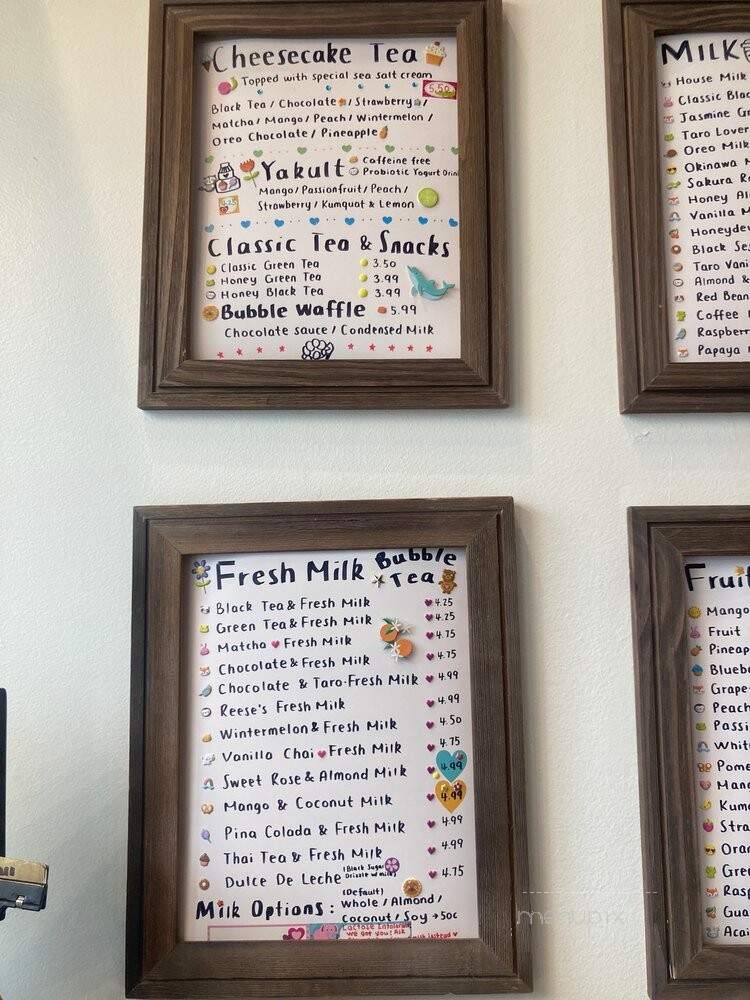 Cheesecake Tea
Topped with special sea salt cream
5.50
Black Tea / Chocolate / Strawberry /
Matcha / Mango / Peach / Wintermelon /
Oreo Chocolate / Pineapple
Yakult
Caffeine free
Probiotic Yogurt Drink
4.25
Mango / Passionfruit / Peach /
Strawberry / Kumquat & Lemon
Classic Tea & Snacks
Classic Green Tea 3.50
Honey Green Tea 3.99
Honey Black Tea 3.99
Bubble Waffle 5.99
Chocolate sauce / Condensed Milk
Milk
House Milk
Classic Blac
Jasmine Gr
Taro Lover
Oreo Milk
Okinawa M
Sakura Ro
Honey Al
Vanilla M
Honeydew
Black Ses
Taro Vani
Almond &
Red Bean
Coffee
Raspberr
Papaya
Fresh Milk Bubble Tea
Black Tea & Fresh Milk 4.25
Green Tea & Fresh Milk 4.25
Matcha Fresh Milk 4.75
Chocolate & Fresh Milk 4.75
Chocolate & Taro-Fresh Milk 4.99
Reese's Fresh Milk 4.99
Wintermelon & Fresh Milk 4.50
Vanilla Chai Fresh Milk 4.75
Sweet Rose & Almond Milk 4.99
Mango & Coconut Milk 4.99
Pina Colada & Fresh Milk 4.99
Thai Tea & Fresh Milk 4.99
Dulce De Leche (Black Sugar Drizzle w/ milk) 4.75
(Default)
Milk Options: Whole / Almond /
Coconut / Soy +50c
Lactose Intolerant
we got you! Ask
milk instead
Fruit
Mango
Fruit
Pineap
Blueb
Grape
Peach
Passi
Whit
Pome
Mang
Kum
Stra
Oran
Gree
Rasp
Gua
Acai
menupix